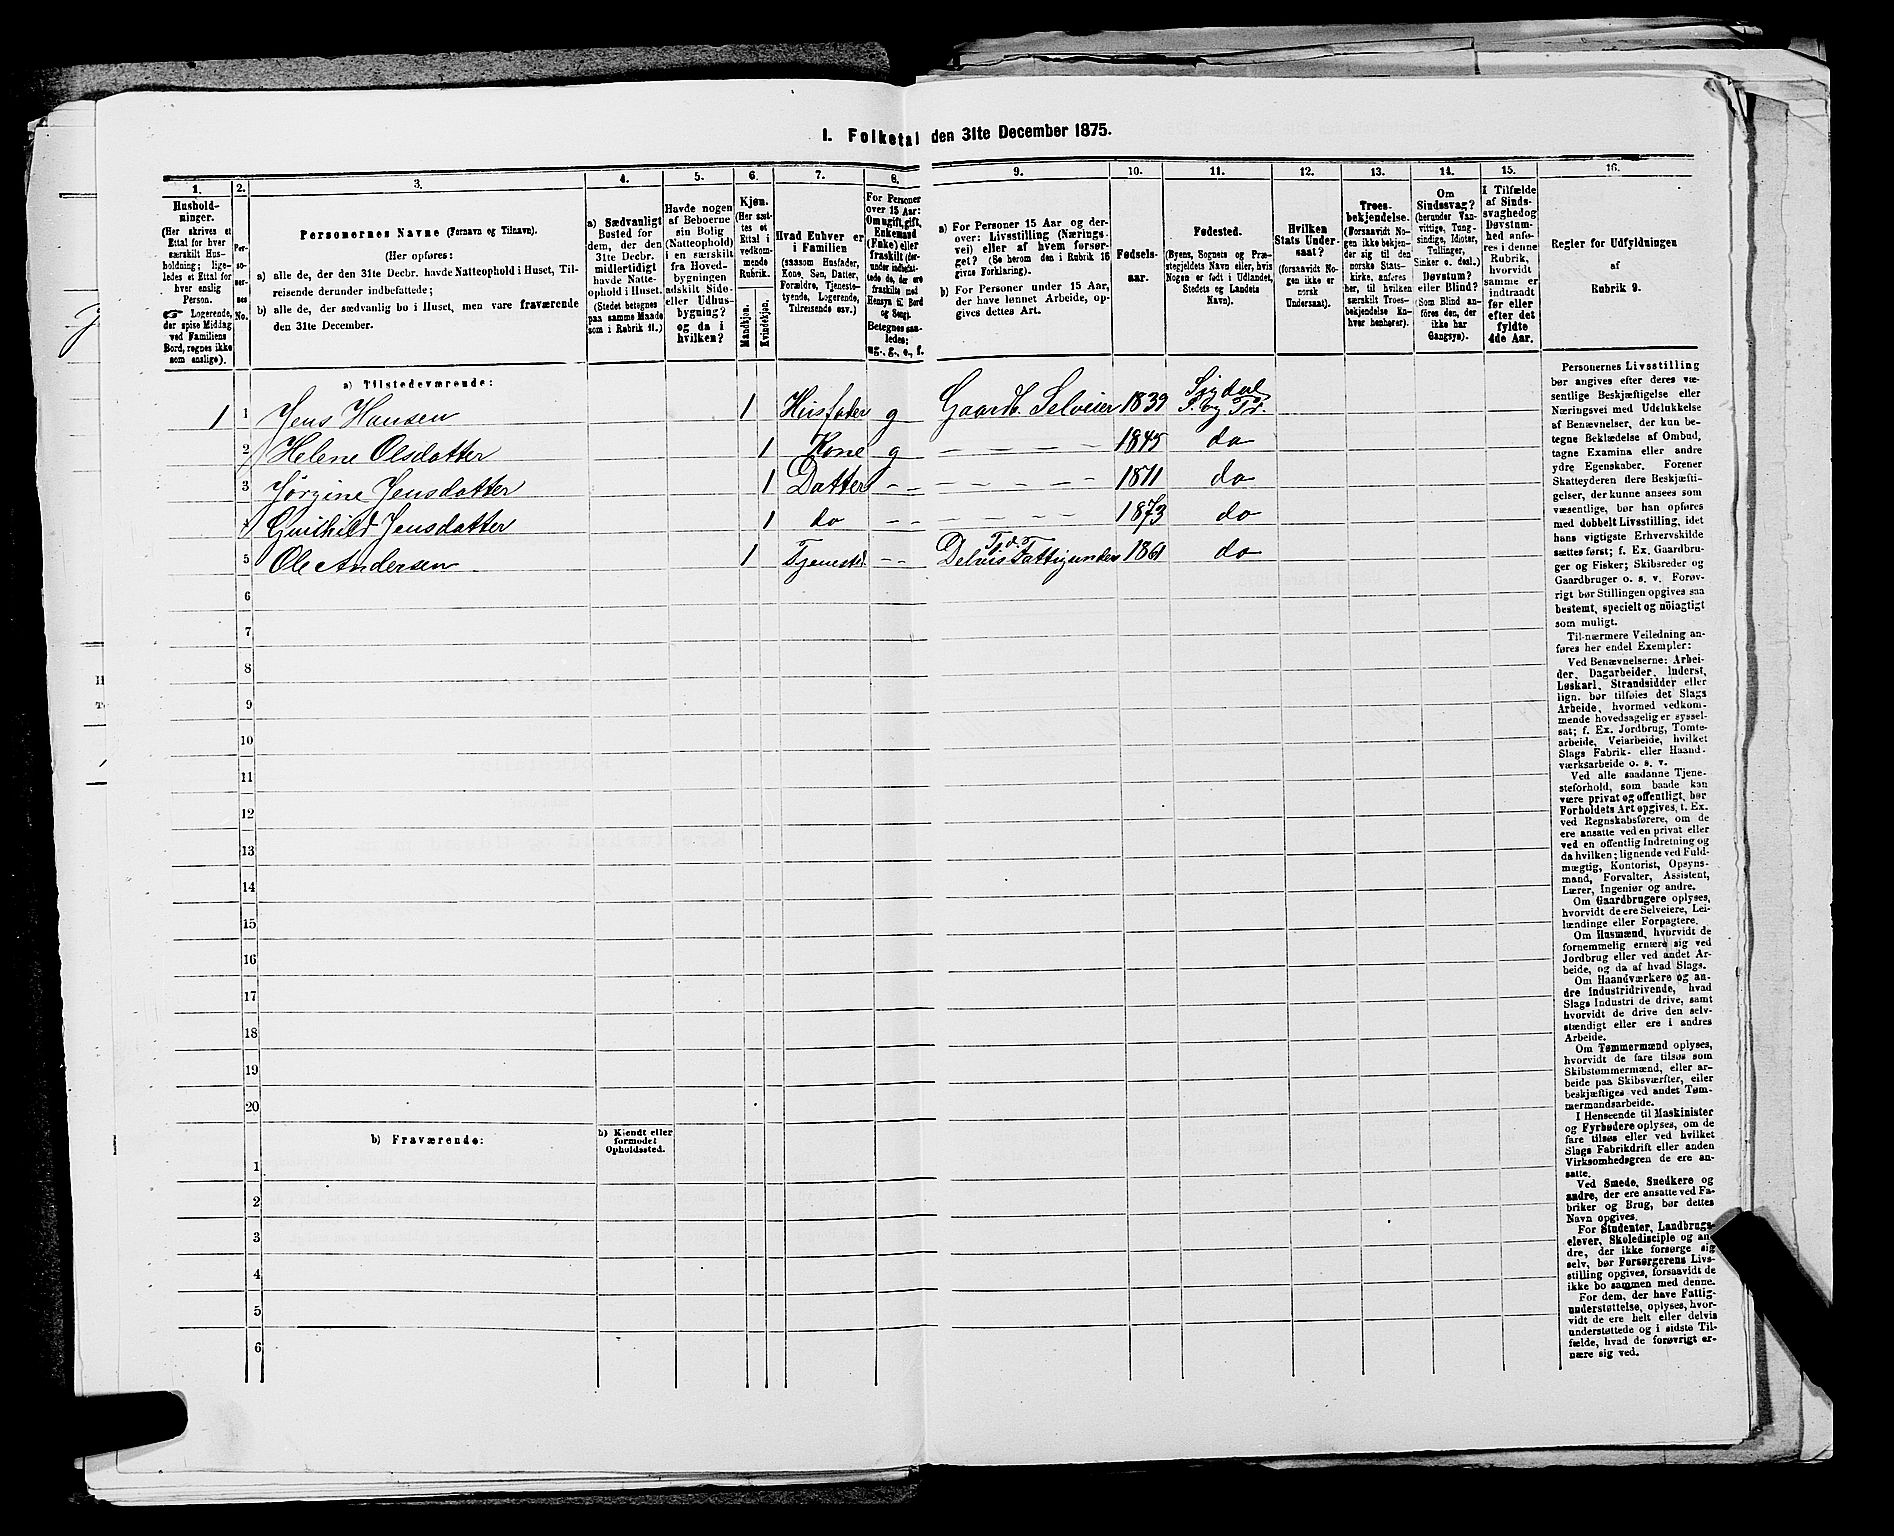 I. Folketal den 31te December 1875.
1.
Hushold-
ninger.
(Her skrives et
Ettal for hver
særskilt Hus-
holdning; lige-
ledes et Ettal for
hver enslig
Person.
☞ Logerende,
der spise Middag
ved Familiens
Bord, regnes ikke
som enslige).
2.
Per-
so-
ner-
nes
No.
3.
Personernes Navne (Fornavn og Tilnavn).
(Her opføres:
a) alle de, der den 31te Decbr. havde Natteophold i Huset, Til-
reisende derunder indbefattede;
b) alle de, der sædvanlig bo i Huset, men vare fraværende
den 31te December.
4.
a) Sædvanligt
Bosted for
dem, der den
31te Decbr.
midlertidigt
havde Natte-
ophold i Huset.
(Stedet betegnes
paa samme Maade
som i Rubrik 11.)
5.
Havde nogen
af Beboerne
sin Bolig
(Natteophold)
i en særskilt
fra Hoved-
bygningen
adskilt Side-
eller Udhus-
bygning?
og da i
hvilken?
6.
Kjøn.
(Her sæt-
tes et
Ettal i
vedkom-
mende
Rubrik.
Mandkjøn.
Kvindekjøn.
7.
Hvad Enhver er
i Familien
(saasom Husfader,
Kone, Søn, Datter,
Forældre, Tjeneste-
tyende, Logerende,
Tilreisende osv.)
8.
For Personer
over 15 Aar:
Om ugift, gift,
Enkemand
(Enke) eller
fraskilt (der-
under indbefat-
tede de, der ere
fraskilte med
Hensyn til Bord
og Seng).
Betegnes saa-
ledes:
ug., g., e., f.
9.
a) For Personer 15 Aar og der-
over: Livsstilling (Nærings-
vei) eller af hvem forsør-
get? (Se herom den i Rubrik 16
givne Forklaring).
b) For Personer under 15 Aar,
der have lønnet Arbeide, op-
gives dettes Art.
10.
Fødsels-
aar.
11.
Fødested.
(Byens, Sognets og Præ-
stegjeldets Navn eller, hvis
Nogen er født i Udlandet,
Stedets og Landets
Navn).
12.
Hvilken
Stats Under-
saat?
(forsaavidt No-
gen ikke er
norsk
Undersaat).
13.
Troes-
bekjendelse.
(Forsaavidt No-
gen ikke bekjen-
der sig til den
norske Stats-
kirke, anføres
her, til hvilken
særskilt Troes-
bekjendelse En-
hver henhører).
14.
Om
Sindssvag?
(herunder Van-
vittige, Tung-
sindige, Idioter,
Tullinger,
Sinker o. desl.)
Døvstum?
eller Blind?
(Som Blind an-
føres den, der
ikke har
Gangsyn).
15.
I Tilfælde
af Sinds-
svaghedog
Døvstum-
hed anfø-
res i denne
Rubrik,
hvorvidt
samme er
indtraadt
før eller
efter det
fyldte
4de Aar.
16.
Regler for Udfyldningen
af
Rubrik 9.
a) Tilstedeværende:
1 1 Jens Hansen 1 Husfader g Gaardb. Selveier 1839 Sigdal S. og Pd.
2 Helene Olsdatter 1 Kone g – – – – 1845 do
3 Jørgine Jensdatter 1 Datter – – – – – – 1871 do
4 Gunhild Jensdatter 1 do – – – – – – 1873 do
5 Ole Andersen 1 Tjenestd. – – Delvis Fattigunder 1861 do
6
7
8
9
10
11
12
13
14
15
16
17
18
19
20
b) Fraværende:
b) Kjendt eller
formodet
Opholdssted.
1
2
3
4
5
6
Personernes Livsstilling
bør angives efter deres væ-
sentlige Beskjæftigelse eller
Næringsvei med Udelukkelse
af Benævnelser, der kun be-
tegne Beklædelse af Ombud,
tagne Examina eller andre
ydre Egenskaber. Forener
Skatteyderen flere Beskjæfti-
gelser, der kunne ansees som
væsentlige, bør han opføres
med dobbelt Livsstilling, idet
hans vigtigste Erhvervskilde
sættes først; f. Ex. Gaardbru-
ger og Fisker; Skibsreder og
Gaardbruger o. s. v. Forøv-
rigt bør Stillingen opgives saa
bestemt, specielt og nöiagtigt
som muligt.
Til nærmere Veiledning an-
føres her endel Exempler:
Ved Benævnelserne: Arbei-
der, Dagarbeider, Inderst,
Løskarl, Strandsidder eller
lign. bør tilføies det Slags
Arbeide, hvormed vedkom-
mende hovedsagelig er syssel-
sat; f. Ex. Jordbrug, Tomte-
arbeide, Veiarbeide, hvilket
Slags Fabrik- eller Haand-
værksarbeide o. s. v.
Ved alle saadanne Tjene-
steforhold, som baade kan
være privat og offentligt, bør
Forholdets Art opgives, t. Ex.
ved Regnskabsførere, om de
ere ansatte ved en privat eller
ved en offentlig Indretning og
da hvilken; lignende ved Fuld-
mægtig, Kontorist, Opsyns-
mand, Forvalter, Assistent,
Lærer, Ingeniør og andre.
Om Gaardbrugere oplyses,
hvorvidt de ere Selveiere, Lei-
lændinge eller Forpagtere.
Om Husmænd, hvorvidt de
fornemmelig ernære sig ved
Jordbrug eller ved andet Ar-
beide, og da af hvad Slags.
Om Haandværkere og an-
dre Industridrivende, hvad
Slags Industri de drive, samt
hvorvidt de drive den selv-
stændigt eller ere i andres
Arbeide.
Om Tømmermænd oplyses,
hvorvidt de fare tilsøs som
Skibstømmermænd, eller ar-
beide paa Skibsværfter, eller
beskjæftiges ved andet Tøm-
mermandsarbeide.
I Henseende til Maskinister
og Fyrbødere oplyses, om de
fare tilsøs eller ved hvilket
Slags Fabrikdrift eller anden
Virksomhedsgren de ere an-
satte.
Ved Smede, Snedkere og
andre, der ere ansatte ved Fa-
briker og Brug, bør dettes
Navn opgives.
For Studenter, Landbrugs-
elever, Skoledisciple og an-
dre, der ikke forsørge sig
selv, bør Forsørgerens Livs-
stilling opgives, forsaavidt de
ikke bo sammen med denne.
For dem, der have Fattig-
understøttelse, oplyses, hvor-
vidt de ere helt eller delvis
understøttede og i sidste Til-
fælde, hvad de forøvrigt er-
nære sig ved.